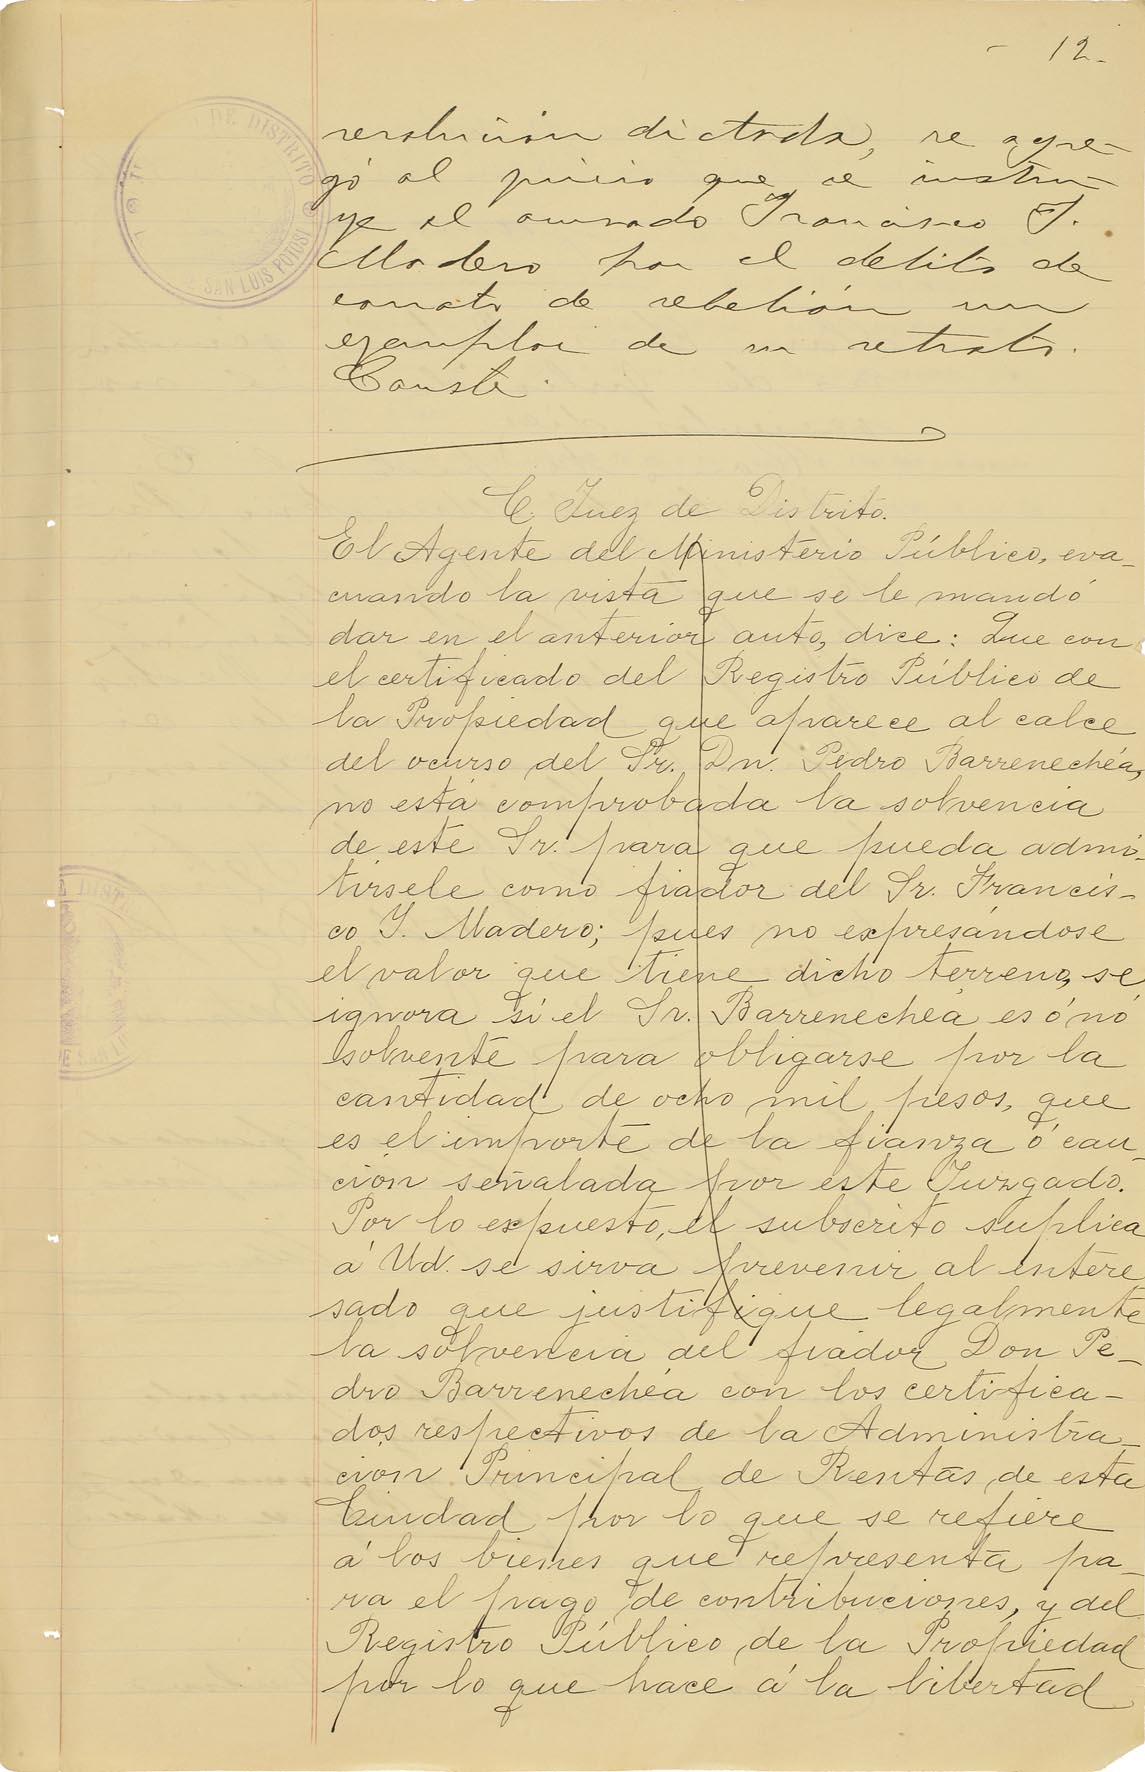 12.
DE DISTRITO
SAN LUIS POTOSI
resolución dictada, se agre-
gó al juicio que se instru-
ye al acusado Francisco I.
Madero por el delito de
conato de rebelión un
ejemplar de su retrato.
Conste.
C. Juez de Distrito.
El Agente del Ministerio Público, eva-
cuando la vista que se le mandó
dar en el anterior auto, dice: Que con
el certificado del Registro Público de
la Propiedad que aparece al calce
del ocurso del Sr. Dn. Pedro Barrenechéa,
no está comprobada la solvencia
de este Sr. para que pueda admi-
tírsele como fiador del Sr. Francis-
co I. Madero; pues no expresándose
el valor que tiene dicho terreno, se
ignora si el Sr. Barrenechéa es ó nó
solvente para obligarse por la
cantidad de ocho mil pesos, que
es el importe de la fianza ó cau-
ción señalada por este Juzgado.
Por lo expuesto, el subscrito suplica
á Ud. se sirva prevenir al intere
sado que justifique legalmente
la solvencia del fiador Don Pe-
dro Barrenechéa con los certifica-
dos respectivos de la Administra-
ción Principal de Rentas de esta
Ciudad por lo que se refiere
á los bienes que representa pa-
ra el pago de contribuciones, y del
Registro Público de la Propiedad
por lo que hace á la libertad
DIST